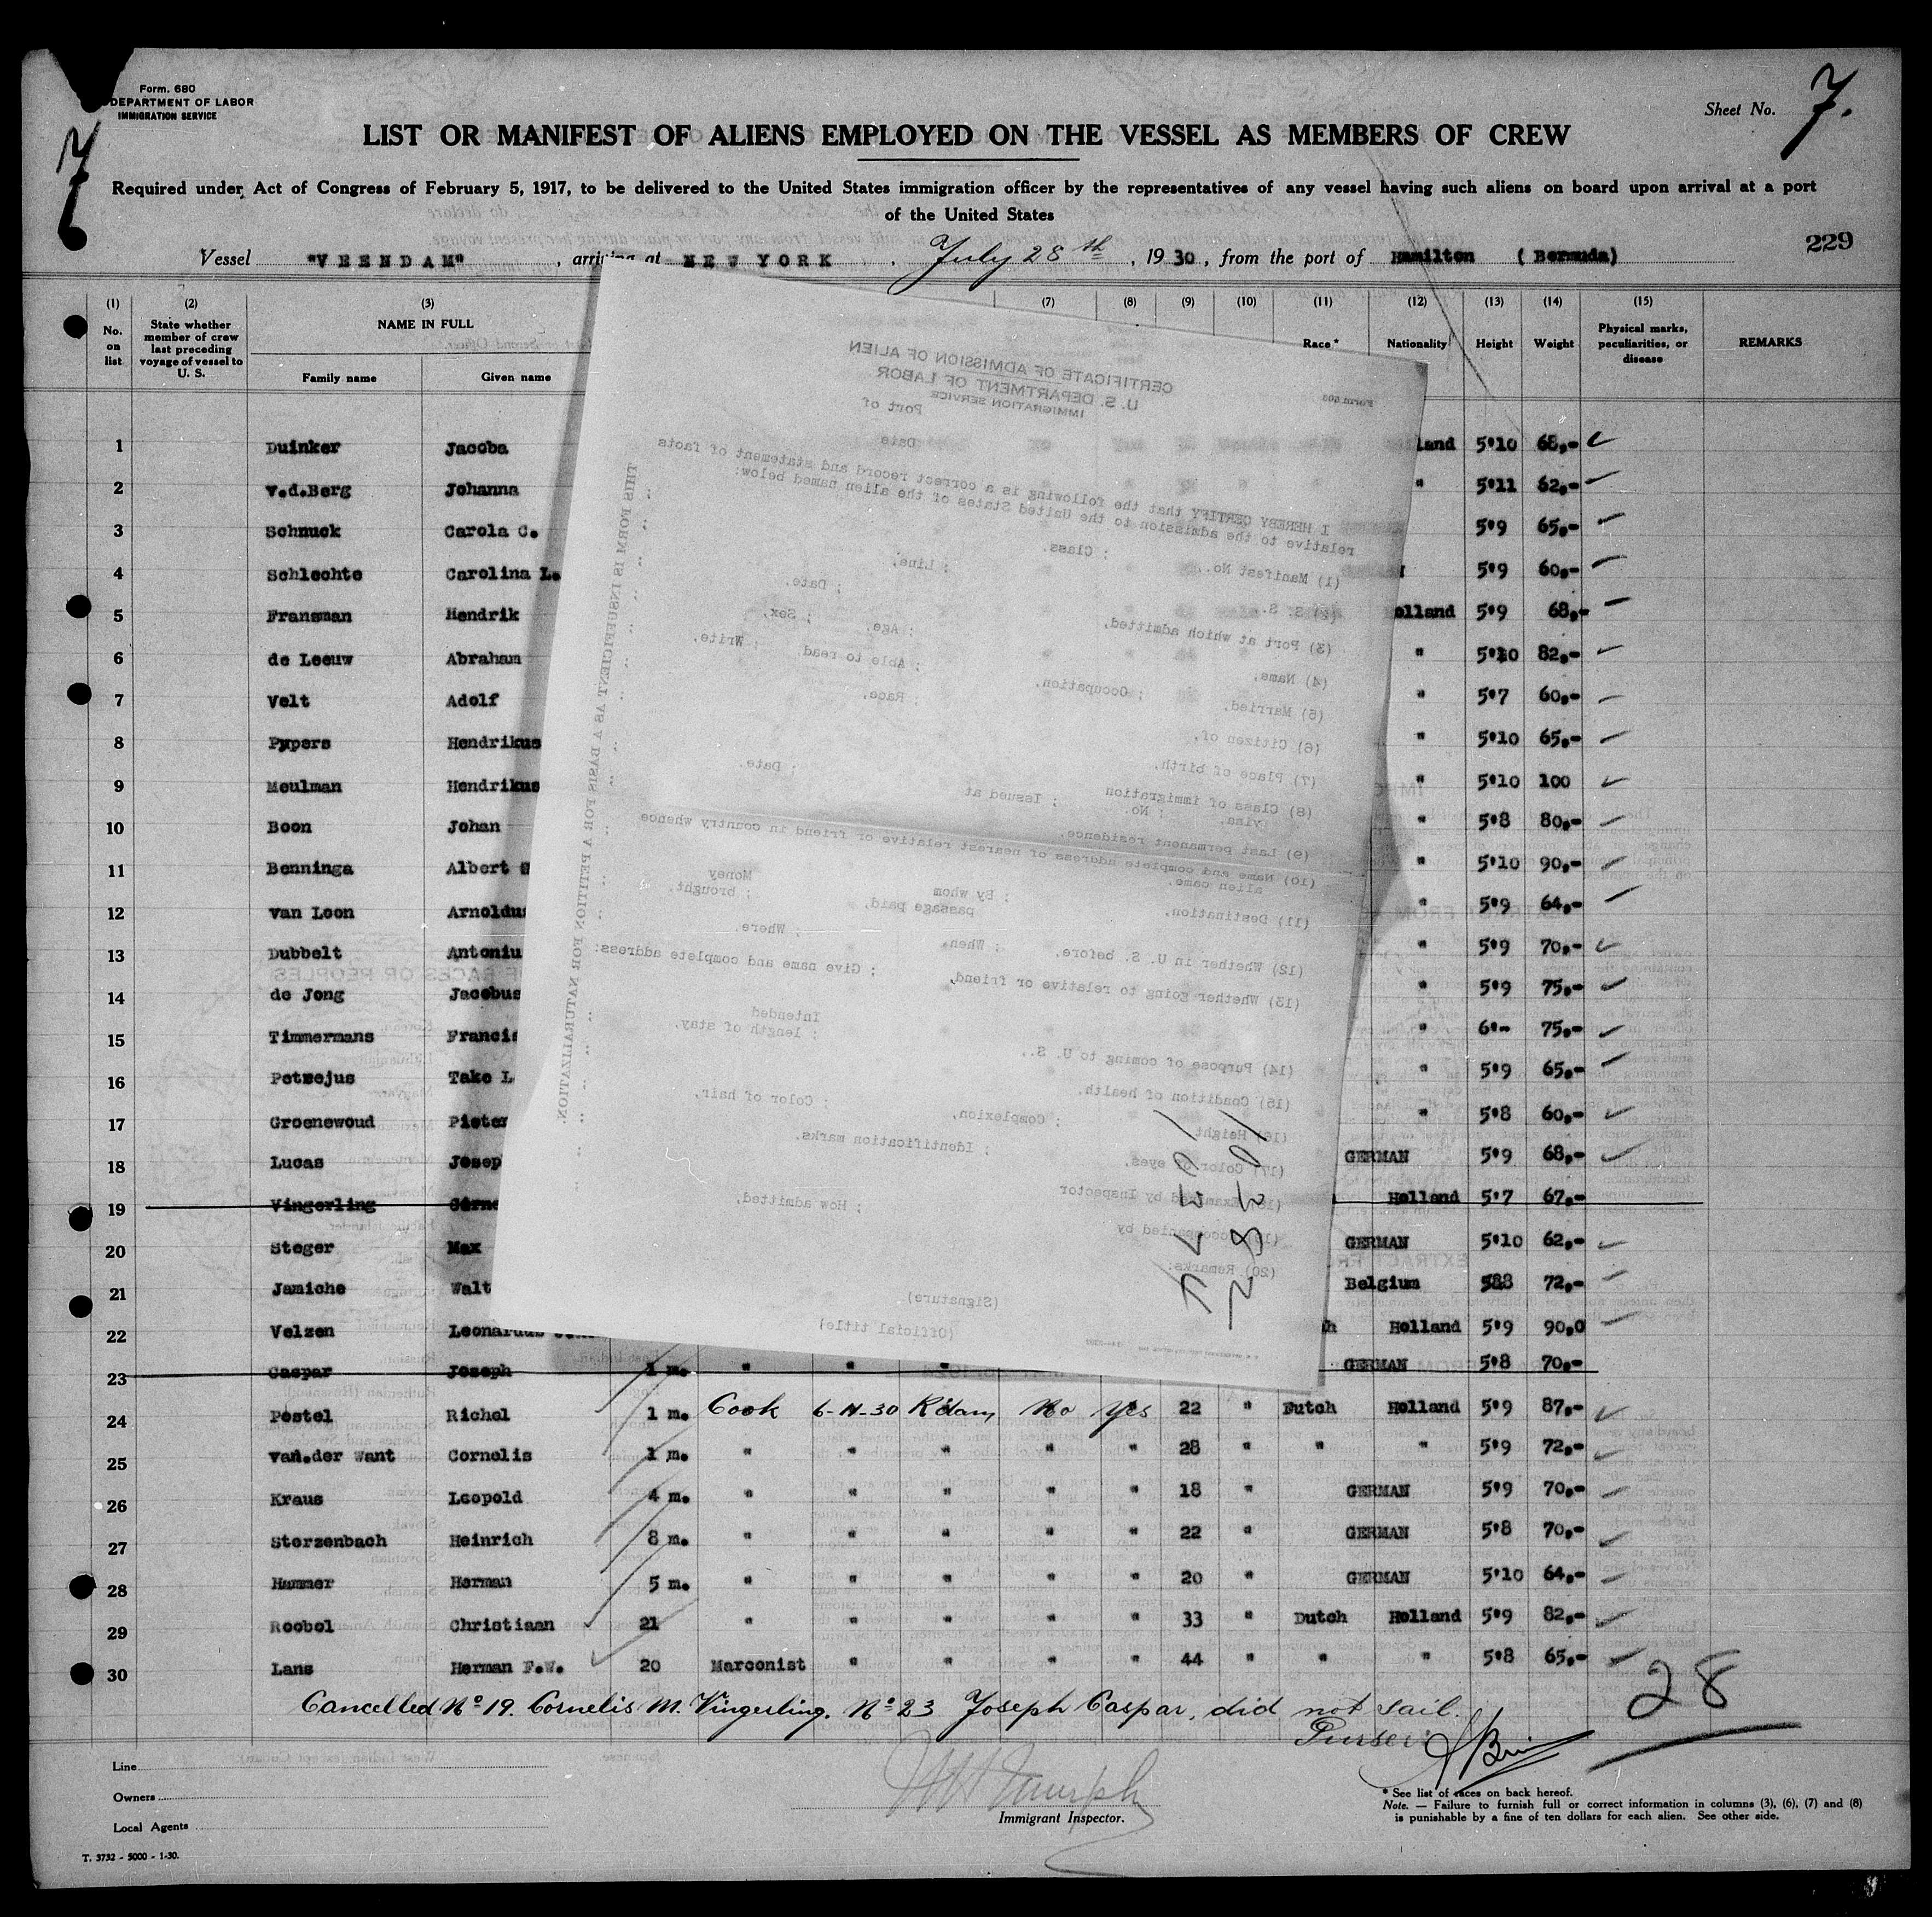 Form. 680
DEPARTMENT OF LABOR
IMMIGRATION SERVICE
Sheet No. 7.
7
LIST OR MANIFEST OF ALIENS EMPLOYED ON THE VESSEL AS MEMBERS OF CREW
Required under Act of Congress of February 5, 1917, to be delivered to the United States immigration officer by the representatives of any vessel having such aliens on board upon arrival at a port
of the United States
229
Vessel "VEENDAM", arriving at NEW YORK, July 28th, 1930, from the port of Hamilton (Bermuda)
(1) (2) (3) (7) (8) (9) (10) (11) (12) (13) (14) (15)
No. on list State whether member of crew last preceding voyage of vessel to U. S. NAME IN FULL Race* Nationality Height Weight Physical marks, peculiarities, or disease REMARKS
Family name Given name
1 Duinker Jacoba land 5'10 68,-
2 v.d.Berg Johanna " 5'11 62,-
3 Schnuck Carola C. 5'9 65,-
4 Schlechte Carolina L. 5'9 60,-
5 Fransman Hendrik olland 5'9 68,-
6 de Leeuw Abraham " 5'10 82,-
7 Velt Adolf " 5'7 60,-
8 Pypers Hendrikus " 5'10 65,-
9 Meulman Hendrikus " 5'10 100
10 Boon Johan " 5'8 80,-
11 Benninga Albert " 5'10 90,-
12 van Loon Arnoldus " 5'9 64,-
13 Dubbelt Antoniu " 5'9 70,-
14 de Jong Jacobus " 5'9 75,-
15 Timmermans Francis " 6'- 75,-
16 Petrejus Take L " 5'9 65,-
17 Groenewoud Pieter " 5'8 60,-
18 Lucas Josep GERMAN 5'9 68,-
19 Vingerling Corne Holland 5'7 67,-
20 Steger Max GERMAN 5'10 62,-
21 Jamiche Walt Belgium 5'8 72,-
22 Velzen Leonardus h Holland 5'9 90,0
23 Caspar Joseph 1 m. " " " GERMAN 5'8 70,-
24 Pestel Richel 1 m. Cook 6-11-30 R'dam No Yes 22 " Dutch Holland 5'9 87,-
25 van.der Want Cornelis 1 m. " " " " " 28 " " " 5'9 72,-
26 Kraus Leopold 4 m. " " " " " 18 " GERMAN 5'9 70,-
27 Sterzenbach Heinrich 8 m. " " " " " 22 " GERMAN 5'8 70,-
28 Hammer Herman 5 m. " " " " " 20 " GERMAN 5'10 64,-
29 Roobol Christiaan 21 " " " " " 33 " Dutch Holland 5'9 82,-
30 Lans Herman F.W. 20 Marconist " " " " 44 " " " 5'8 65,-
Cancelled No 19. Cornelis M. Vingerling. No 23 Joseph Caspar, did not sail.
Purser:
28
CERTIFICATE OF ADMISSION OF ALIEN
U. S. DEPARTMENT OF LABOR
IMMIGRATION SERVICE
Port of
Date
I HEREBY CERTIFY that the following is a correct record and statement of facts
relative to the admission to the United States of the alien named below:
(1) Manifest No. ; Class.
(2) S. S. ; Line, ; Date.
(3) Port at which admitted,
(4) Name, ; Age, ; Sex,
(5) Married, ; Occupation, ; Able to read, ; Write,
(6) Citizen of, ; Race,
(7) Place of birth,
(8) Class of immigration visa, ; No. ; Issued at ; Date.
(9) Last permanent residence,
(10) Name and complete address of nearest relative or friend in country whence
alien came,
(11) Destination, ; By whom passage paid, ; Money brought,
(12) Whether in U. S. before, ; When, ; Where,
(13) Whether going to relative or friend, ; Give name and complete address:
(14) Purpose of coming to U. S., ; Intended length of stay,
(15) Condition of health,
(16) Height ; Complexion, ; Color of hair,
(17) Color of eyes, ; Identification marks.
(18) Examined by Inspector ; How admitted,
(19) Accompanied by
(20) Remarks:
(Signature)
(Official title)
THIS FORM IS INSUFFICIENT AS A BASIS FOR A PETITION FOR NATURALIZATION.
Line
Owners
Local Agents
Immigrant Inspector.
* See list of races on back hereof.
Note. — Failure to furnish full or correct information in columns (3), (6), (7) and (8)
is punishable by a fine of ten dollars for each alien. See other side.
T. 3732 - 5000 - 1-30.